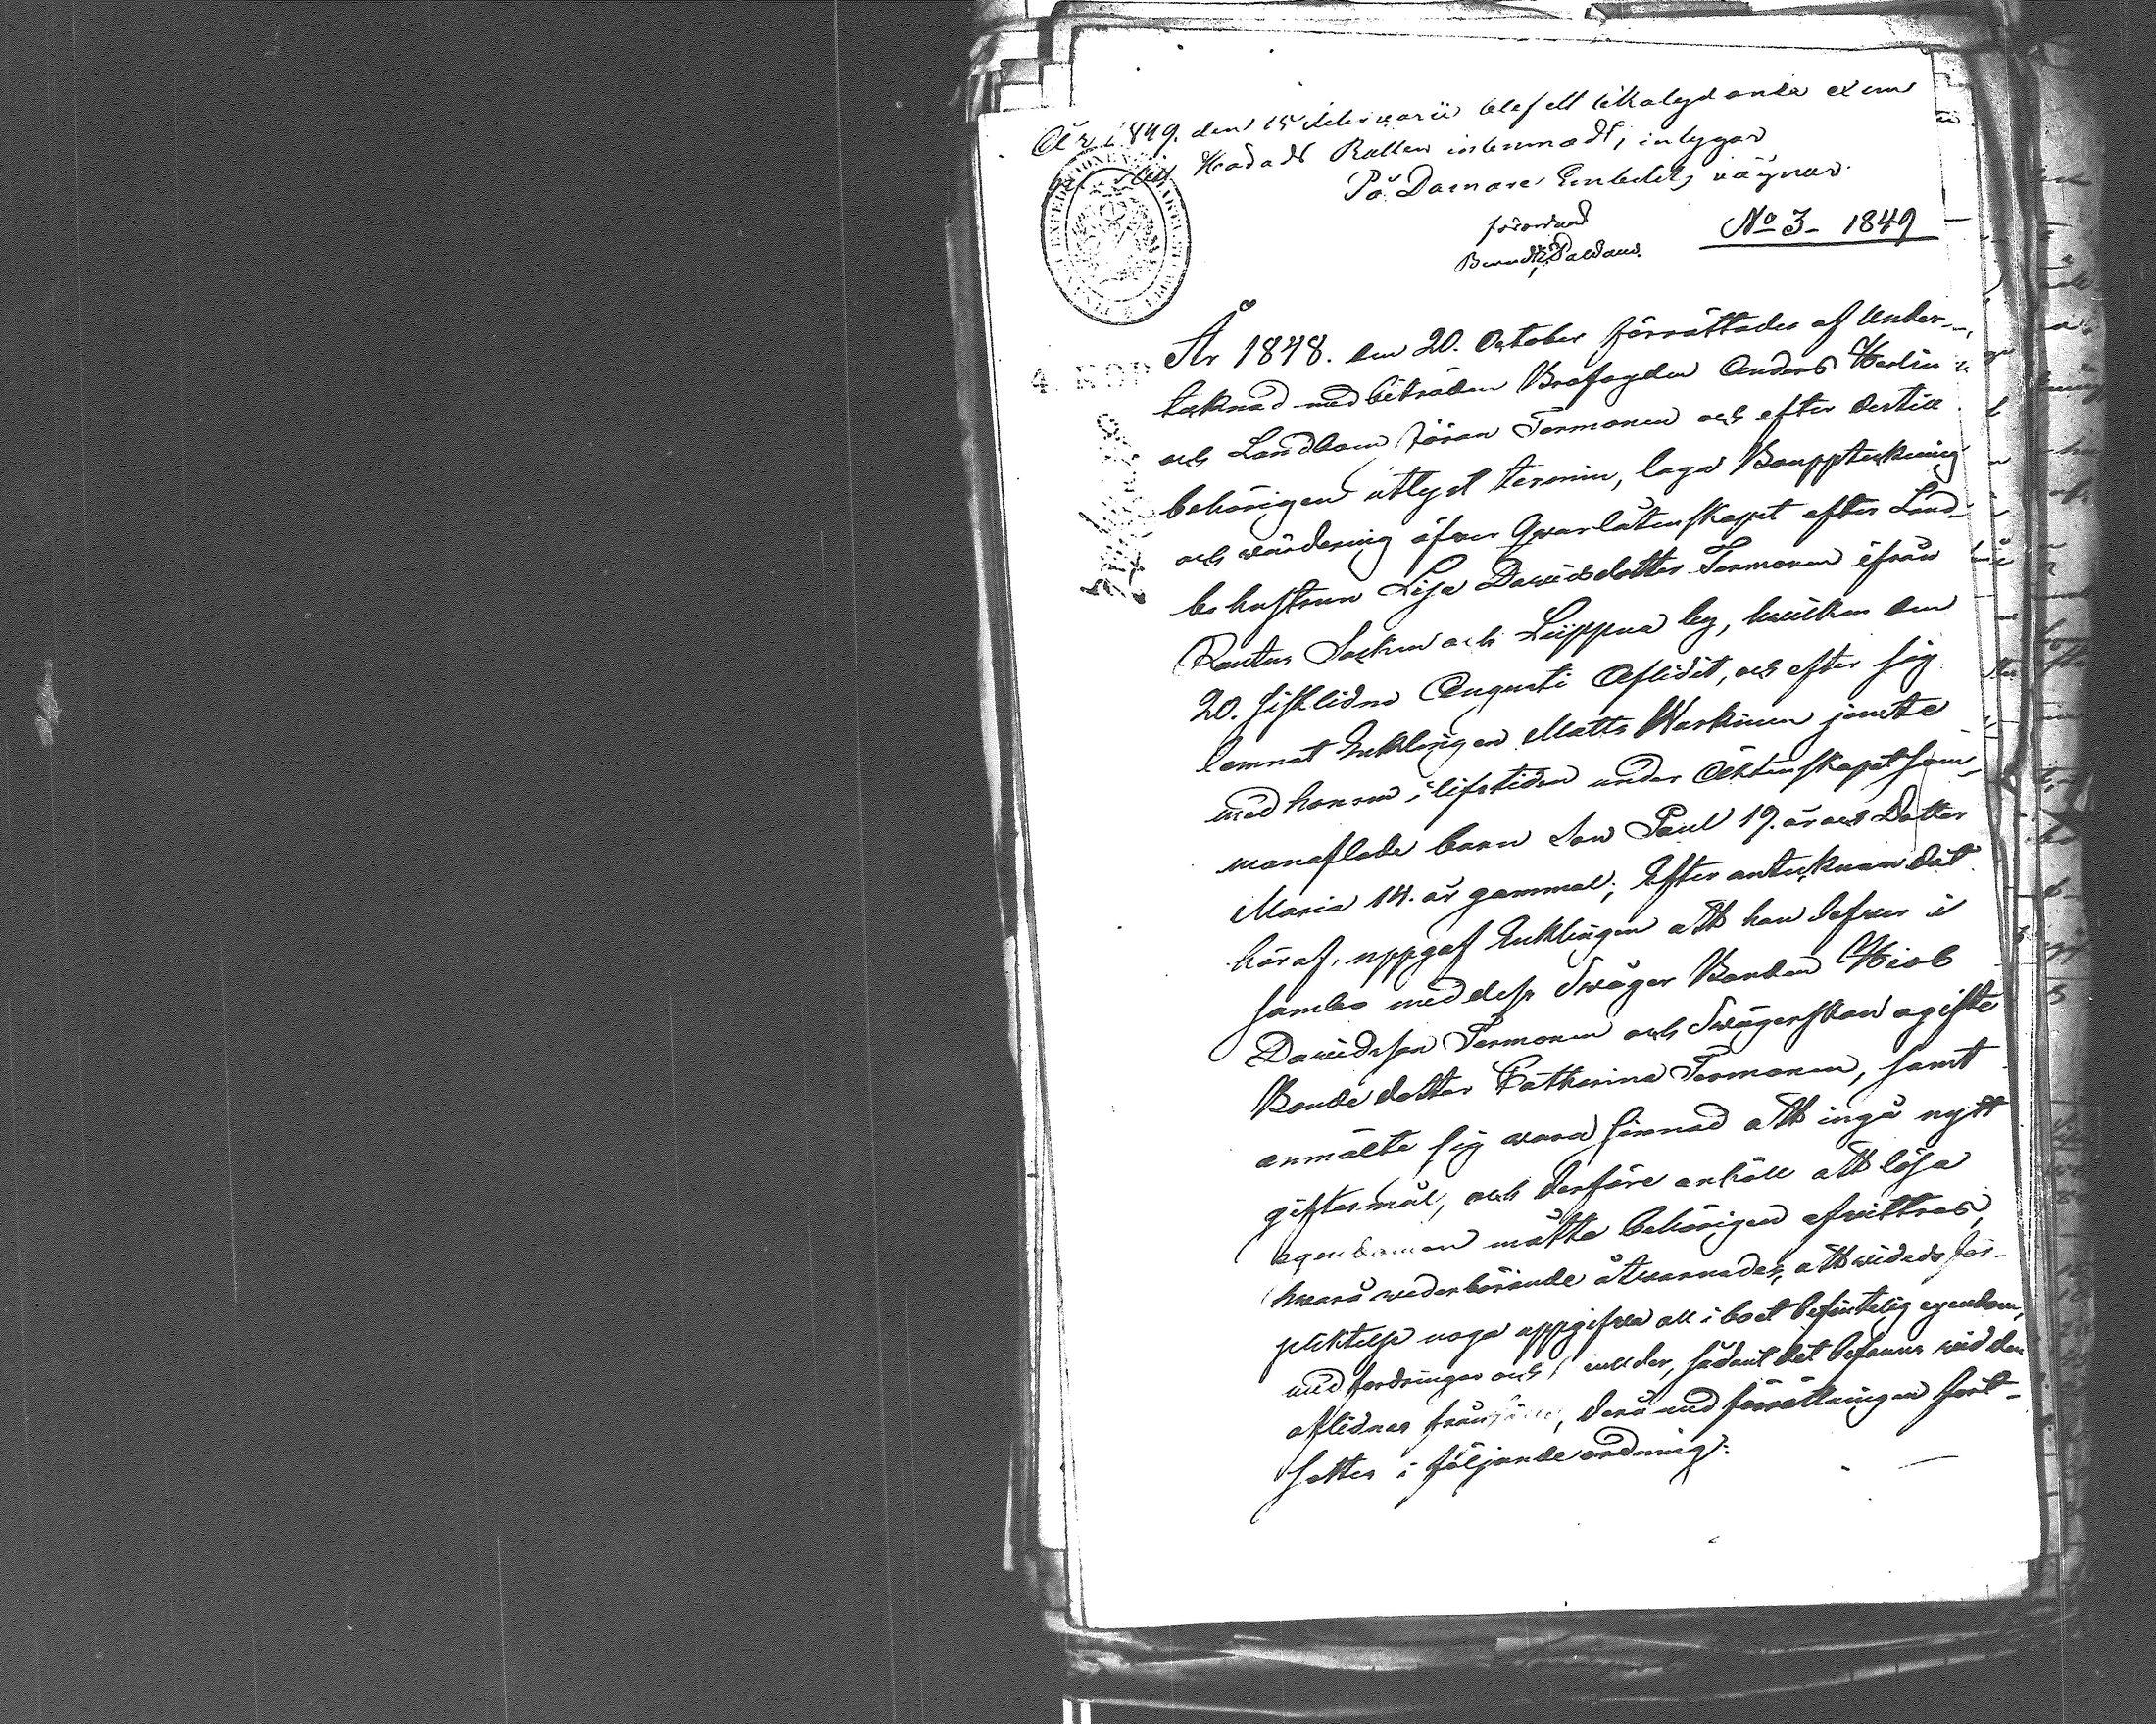 År 1849. den 15 Februarii blef ett lika lydande exem
Härads Rätten inlemnadt, intygar
På Domare Embetets vägnar
förordnad
No 3 - 1849
4. KOP
År 1848. den 20. October förrättades af Under-
tecknad med biträden Brofogden Anders Herlin
och Landboen Jöran Termonen och efter dertill
behörigen utlyst termin, laga Bouppteckning
och wärdering öfwer Qwarlåtenskapet efter Land-
bo hustrun Lisa Dawidsdotter Termonen ifrån
Rantas Socken och by, hwilken den
20. sistlidne Augusti Aflidit, och efter sig
lemnat Enklingen Matts Warkinen jemte
med honom i lifstiden under Äktenskapet sam-
manaflade barn Son Paul 19. år och Dotter
Maria 14. år gammal; Efter antecknandet
häraf, uppgaf Enklingen att han lefwer i
sambo med dess Swåger Bonden Hiob
Dawidsson Termonen och Swägerskan ogifte
Bonde dotter Catharina Termonen, samt
anmälte sig wara sinnad att ingå nytt
giftermål, och derföre anhöll att lösa
egendomen måtte behörigen afwittras,
hwarå wederbörande åtwarnades, att wid eds för-
pliktelse noga uppgifwa all i boet befintelig egendom,
med fordringar och skulder, sådant det befanns wid den
aflidnas frånfälle, derå med förrättningen fort-
settes i följande ordning: